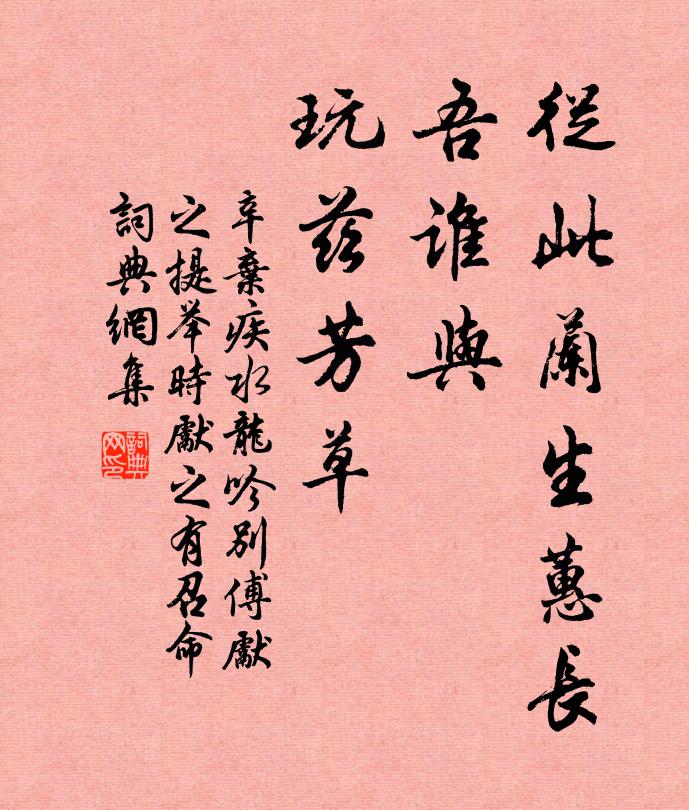 從此蘭生蕙長
吾誰與
玩茲芳草
辛棄疾水龍吟别傅獻
之提举時獻之有召命
詞典網集
詞典
网印